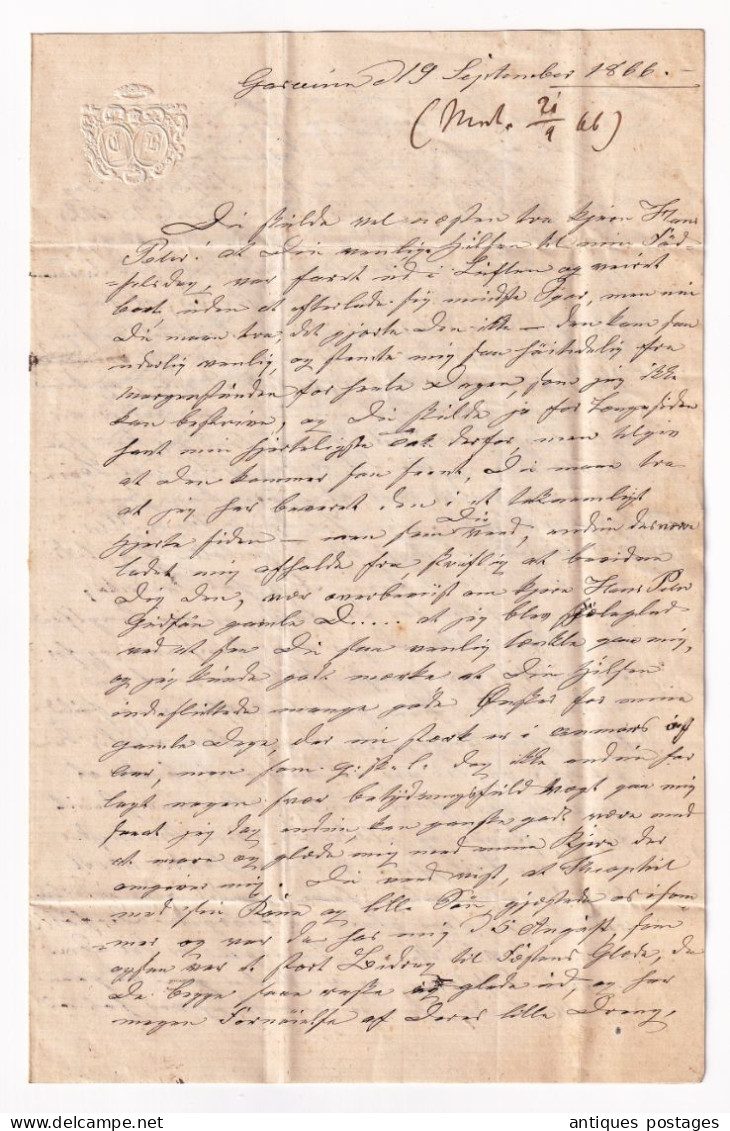 d 19 September 1866.
(Modt. 21/9 66)
Du skulde vel næsten tro kjære Hans
Peter! at Din venlige Hilsen til min Föd-
selsdag, var faret ud i Luften og veiret
bort, uden at efterlade sig mindste Spor, men nei
Du maa tro, det gjorde den ikke — den kom saa
inderlig venlig, og stemte mig saa höitidelig fra
Morgenstunden for hele Dagen, som jeg ikke
kan beskrive, og Du skulde jo for længesiden
havt min hjerteligste Tak derfor, men tilgiv
at den kommer saa seent, Du maa tro
at jeg har bevaret den i et taknemligt
Hjerte siden — men som Du veed,
ladet mig afholde fra, skriftlig at bevidne
Dig den, vær overbeviist om kjære Hans Peter
gamle D..... at jeg blev
ved at see Du saa venlig tænkte paa mig,
og jeg kunde godt mærke at Din Hilsen
indesluttede mange gode Ønsker for mine
gamle Dage, der nu stærk er i
Aar, men som G: sk. l. dog ikke endnu har
lagt nogen svær betydningsfuld Vægt paa mig
jeg dog endnu kan ganske godt være med
at more og glæde mig med mine Kjære der
omgiver mig. Du veed vist, at Theophil
med sin Kone og lille Sön, gjæstede os i Som-
mer og var da hos mig d 5 August, som
ogsaa var et stort Bidrag til Festens Glæde, da
De begge saae raske og glade ud, og har
megen Fornöielse af deres lille Dreng,
antiques postages